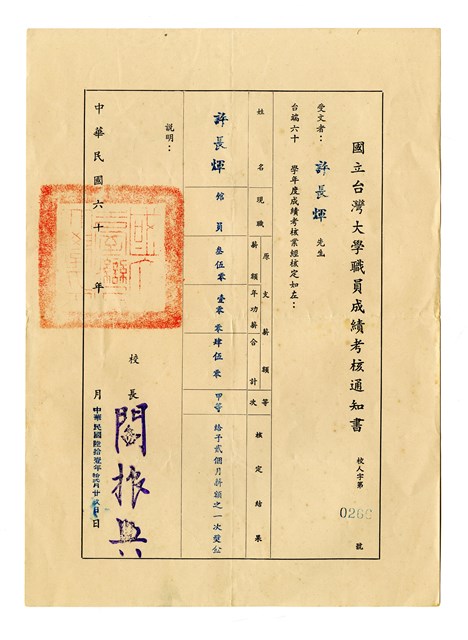 國立台灣大學職員成績考核通知書
校人字第
026
號
受文者：許長輝 先生
台端六十 學年度成績考核業經核定如左：
姓名
現職
原支薪額
薪額
年功薪
合計
等次
核定結果
許長輝
館員
叁伍零
壹零零
肆伍零
甲等
給予貳個月薪額之一次獎金
說明：
校長 閻振興
中華民國六十 年 月 日
中華民國陸拾壹年